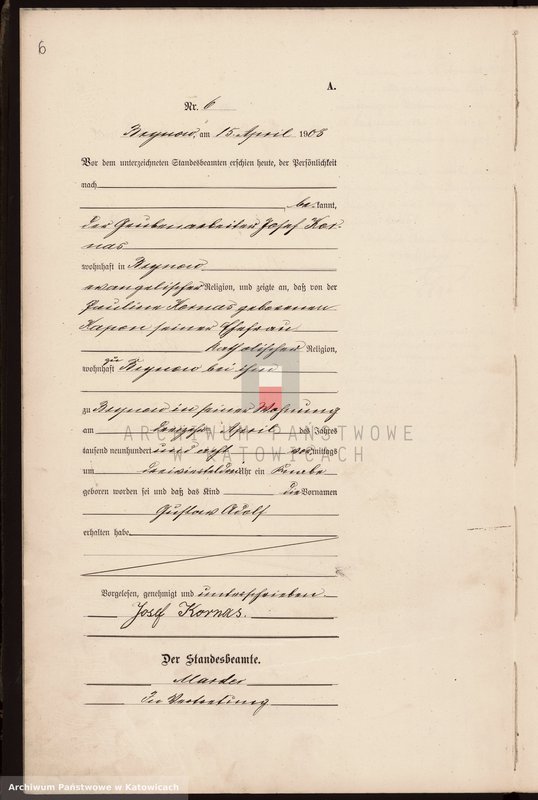 6
A.
Nr. 6
am 15. April 1908
Vor dem unterzeichneten Standesbeamten erschien heute, der Persönlichkeit
nach
be kannt,
der Grubenarbeiter Josef Kor-
nas
wohnhaft in
evangelischer Religion, und zeigte an, daß von der
Pauline Kornas geborenen
seiner Ehefrau
katholischer Religion,
wohnhaft zu bei ihm
zu in seiner Wohnung
am April des Jahres
tausend neunhundert und acht vor mittags
um Uhr ein Knabe
geboren worden sei und daß das Kind die Vornamen
Gustav Adolf
erhalten habe
Vorgelesen, genehmigt und unterschrieben
Josef Kornas.
Der Standesbeamte.
In Vertretung
ARCHIWUM PAŃSTWOWE
W KATOWICACH
Archiwum Państwowe w Katowicach